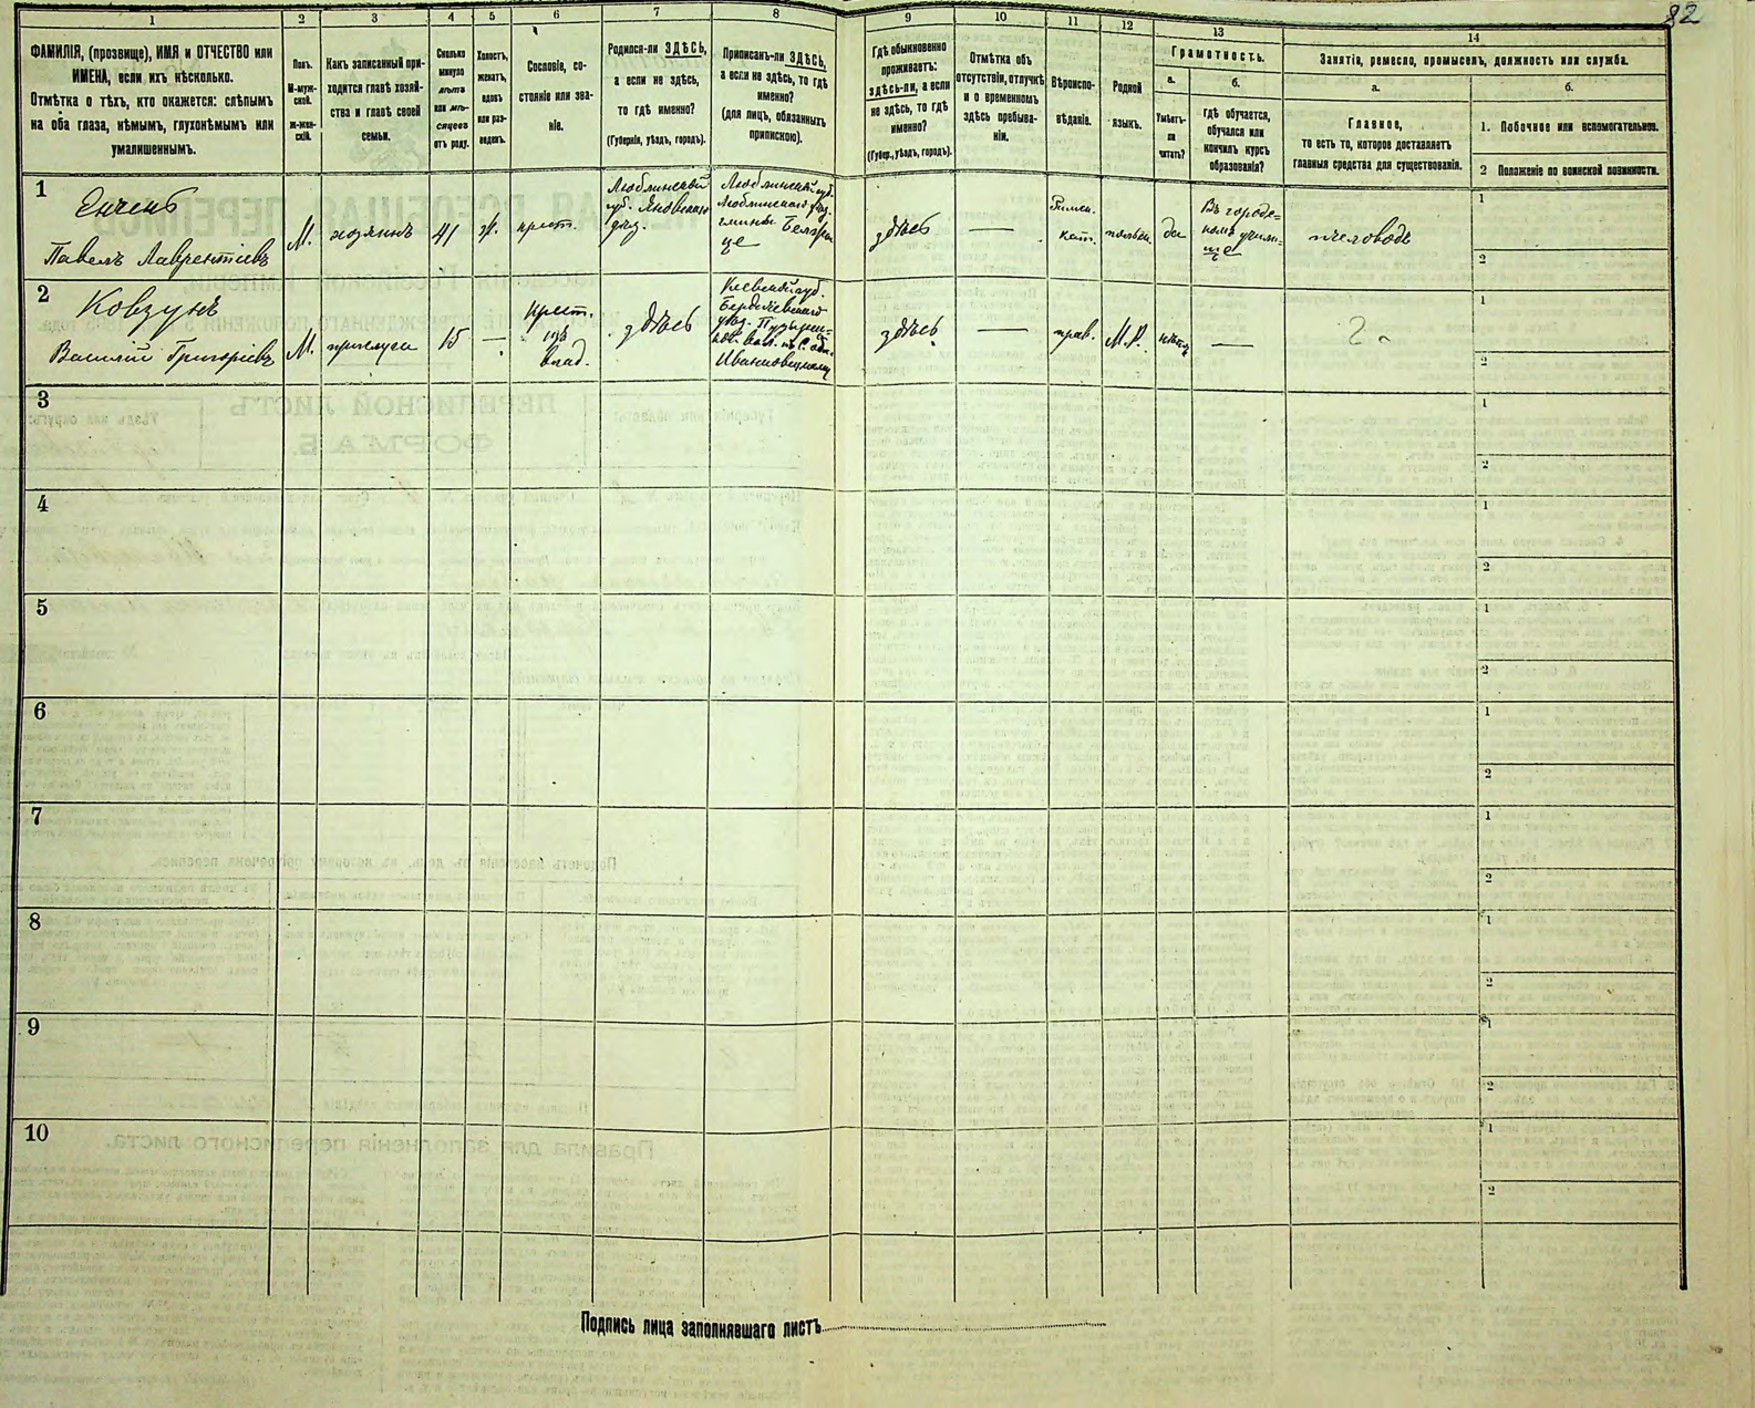 82
1
2
3
4
5
6
7
8
9
10
11
12
13
14
ФАМИЛІЯ, (прозвище), ИМЯ и ОТЧЕСТВО или
ИМЕНА, если ихъ нѣсколько.
Отмѣтка о тѣхъ, кто окажется: слѣпымъ
на оба глаза, нѣмымъ, глухонѣмымъ или
умалишеннымъ.
Полъ.
М-муж-
ской.
Ж-жен-
скій.
Какъ записанный при-
ходится главѣ хозяй-
ства и главѣ своей
семьи.
Сколько
минуло
лѣтъ
или мѣ-
сяцевъ
отъ роду.
Холостъ,
женатъ,
вдовъ
или раз-
веденъ.
Сословіе, со-
стояніе или зва-
ніе.
Родился-ли ЗДѢСЬ,
а если не здѣсь,
то гдѣ именно?
(Губернія, уѣздъ, городъ).
Приписанъ-ли ЗДѢСЬ,
а если не здѣсь, то гдѣ
именно?
(для лицъ, обязанныхъ
припискою).
Гдѣ обыкновенно
проживаетъ:
здѣсь-ли, а если
не здѣсь, то гдѣ
именно?
(Губер., уѣздъ, городъ).
Отмѣтка объ
отсутствіи, отлучкѣ
и о временномъ
здѣсь пребыва-
ніи.
Вѣроиспо-
вѣданіе.
Родной
языкъ.
Грамотность.
а.
б.
Умѣетъ-
ли
читать?
Гдѣ обучается,
обучался или
кончилъ курсъ
образованія?
Занятіе, ремесло, промыселъ, должность или служба.
а.
б.
Главное,
то есть то, которое доставляетъ
главныя средства для существованія.
1. Побочное или вспомогательное.
2 Положеніе по воинской повинности.
1
Енчень
Павелъ Лаврентіевъ
М.
хозяинъ
41
ж.
крест.
Люблинской
губ. Яновскаго
уѣзд.
Люблинской губ.
Люблинскаго уѣзд.
гмины
здѣсь
—
Римск.
кат.
польск.
да
Въ городс=
комъ учили=
ще
пчеловодъ
1
2
2
Ковзунъ
Василій Григоріевъ
М.
прислуга
15
—
крест.
изъ
влад.
здѣсь
Кіевской губ.
Бердичевскаго
уѣзд.
здѣсь
—
прав.
М.Р.
нѣтъ
—
1
2
3
1
2
4
1
2
5
1
2
6
1
2
7
1
2
8
1
2
9
1
2
10
1
2
Подпись лица заполнявшаго листъ